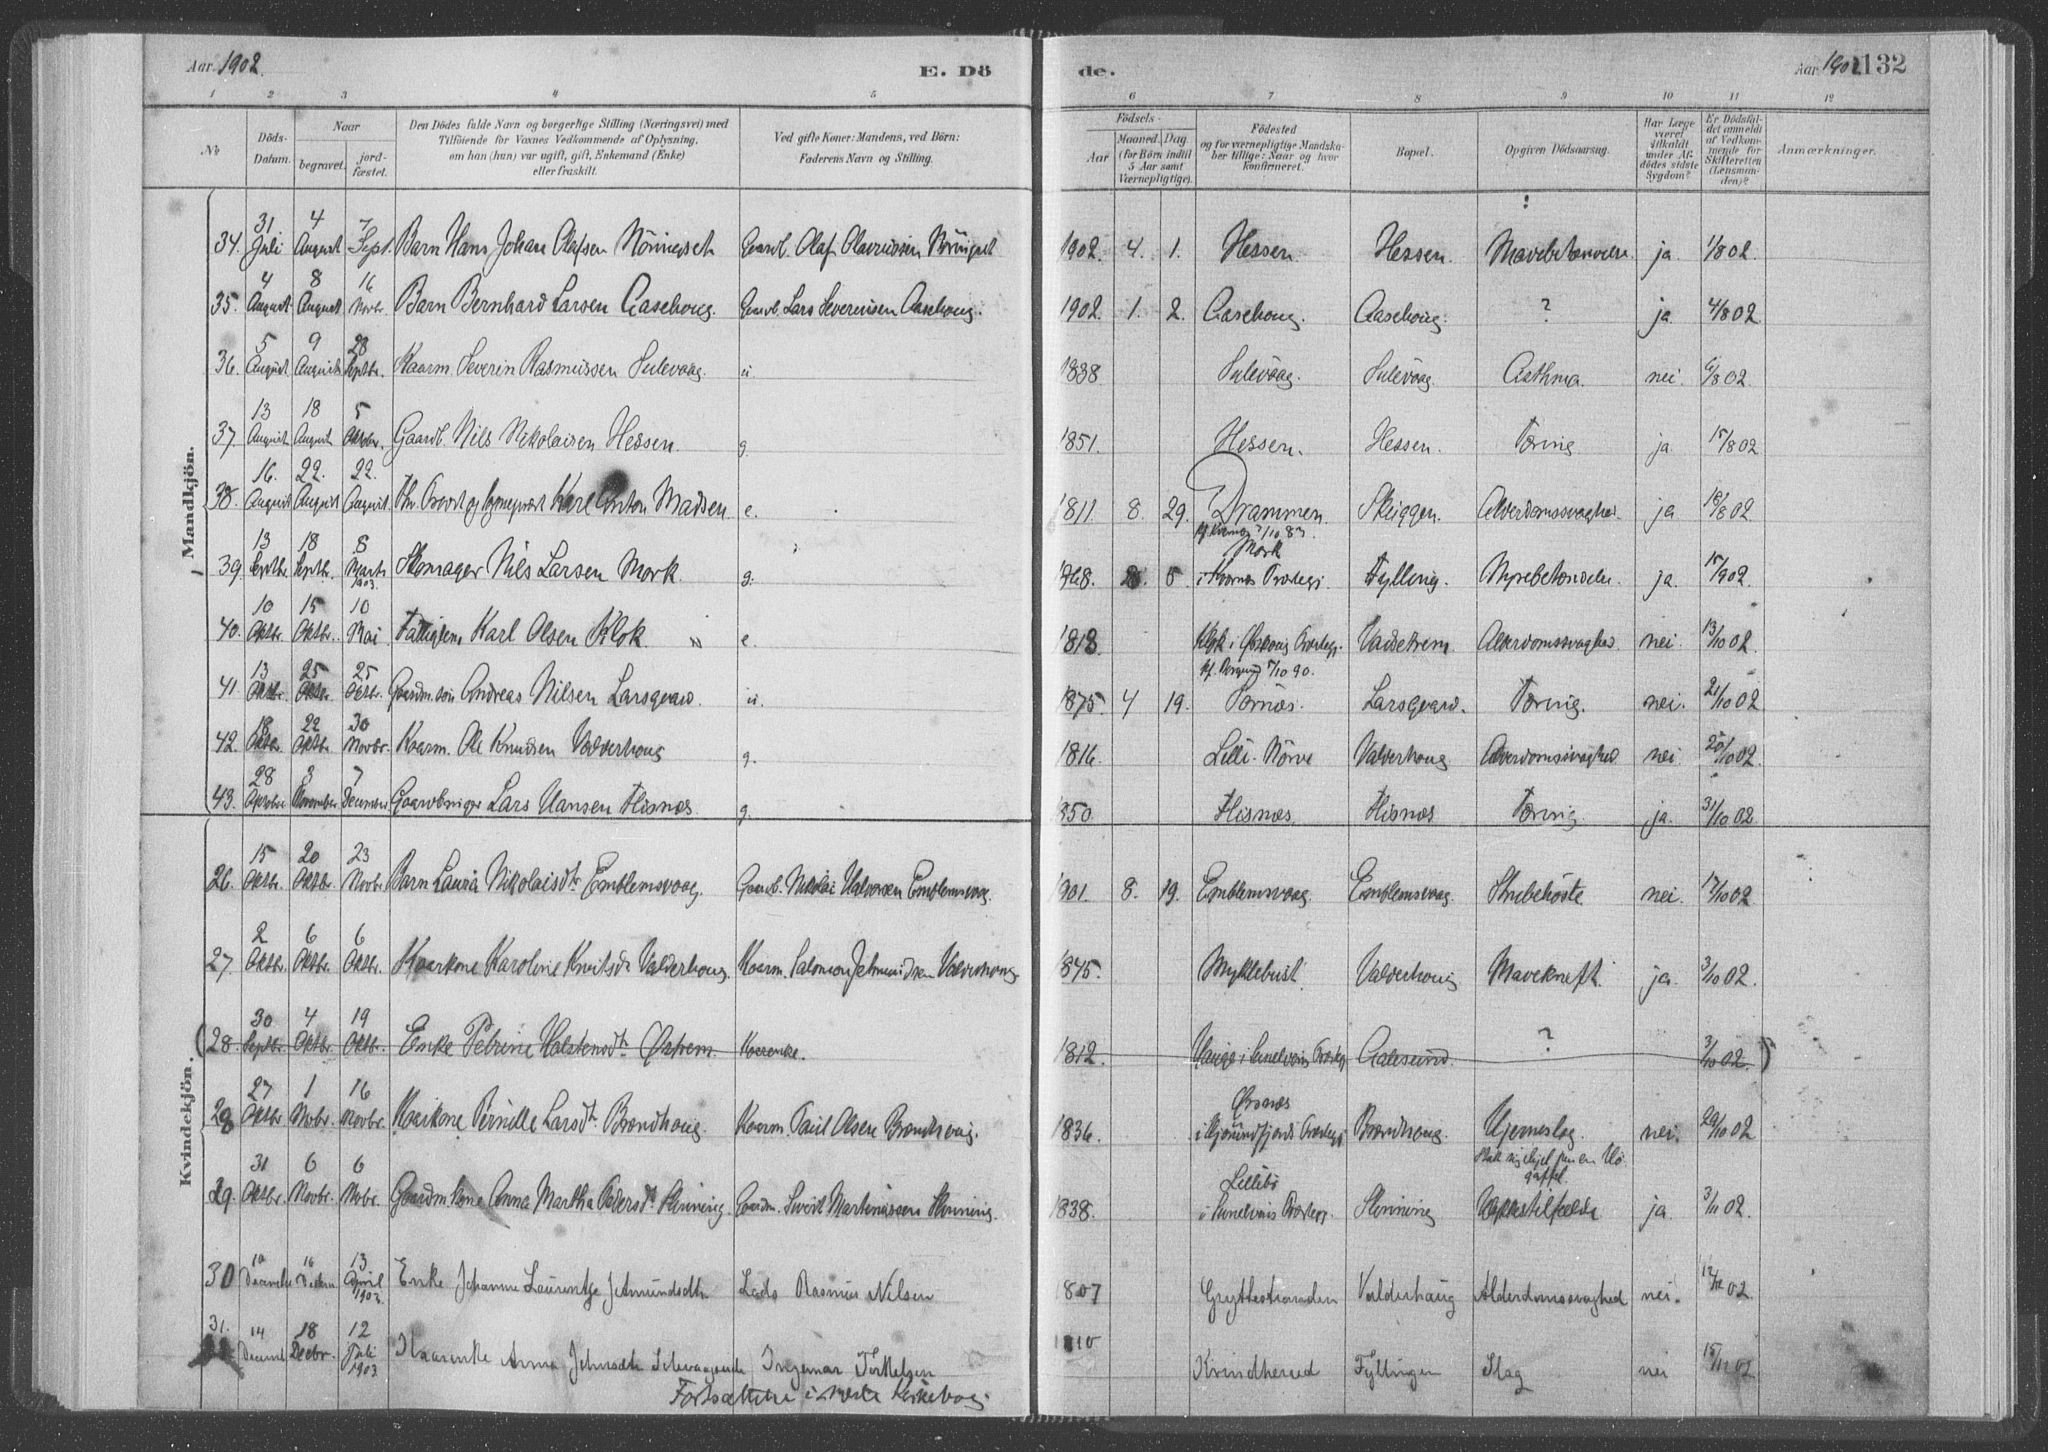 Aar 1902.
E. Dö
de.
Aar 1902
132
1 2 3 4 5 6 7 8 9 10 11 12
No
Döds-Datum.
Naar
begravet.
jord-fæstet.
Den Dödes fulde Navn og borgerlige Stilling (Næringsvei) med
Tilföiende for Voxnes Vedkommende af Oplysning,
om han (hun) var ugift, gift, Enkemand (Enke)
eller fraskilt.
Ved gifte Koner: Mandens, ved Börn:
Faderens Navn og Stilling.
Födsels-
Aar
Maaned. Dag.
(for Börn indtil
5 Aar samt
Værnepligtige).
Födested
og for værnepligtige Mandska-
ber tillige: Naar og hvor
konfirmeret.
Bopæl.
Opgiven Dödsaarsag.
Har Læge
været
tilkaldt
under Af-
dödes sidste
Sygdom?
Er Dödsfal-
det anmeldt
af Vedkom-
mende for
Skifteretten
(Lensman-
den)?
Anmærkninger.
Mandkjön.
34. 31 Juli 4 August 7 Sept. Barn Hans Johan Olafsen Nörvigset Gaardb. Olaf 1902. 4. 1. Hessen. Hessen. Mavebetændelse ja. 1/8 02.
35. 4 August 8 August 16 Novbr. Barn Bernhard Larsen Aasehoug. Gaardb. Lars Severinsen Aasehoug. 1902. 1. 2. Aasehoug. Aasehoug. ? ja 4/8 02
36. 5 August 9 August 28 Septbr. Kaarm. Severin Rasmussen Sulevaag u. 1838 Sulevaag. Sulevaag. Asthma. nei. 6/8 02.
37. 13 August 18 August 5 Oktobr. Gaardb. Nils Nikolaisen Hessen. g. 1851. Hessen. Hessen. Tæring ja 15/8 02
38. 16. August 22. August 22. August Karl Anton Madsen e. 1811. 8. 29. Drammen. Skuggen. Alderdomssvaghed. ja 18/8 02.
39. 13 Septbr. 18 Septbr. 8 Marts 1903. Skomager Nils Larsen Mork. g. 1868. 5 Mork i Præstegj. Fylling. Nyrebetændelse ja. 15/9 02.
40. 10 Oktbr. 15 Oktbr. 10 Mai Fattiglem Karl Olsen Klok e. 1818. Klok i Præstegj. Vadstrem Alderdomssvaghed nei. 13/10 02
41. 13 Oktbr. 25 Oktbr. 25 Octbr. Gaardm.sön Andreas Nilsen Larsgaard. u. 1875. 4 19. Tørnæs. Larsgaard. Tæring. nei. 21/10 02
42. 18 Oktbr. 22 Oktbr. 30 Novbr. Kaarm. Ole Knudsen Valderhoug g. 1816. Lille-Nörve Valderhoug Alderdomssvaghed nei. 20/10 02.
43. 28 Oktobr 3 November 7 December Gaardbruger Lars Hansen Flisnæs. g. 1850. Flisnæs. Flisnæs Tæring. ja. 31/10 02
Kvindekjön.
26. 15 Oktbr. 20 Oktbr. 23 Novbr Barn Laura Nikolaisdtr. Emblemsvaag. Gaardb. Nikolai Halvorsen Emblemsvaag. 1901. 8. 19. Emblemsvaag. Emblemsvaag. Strubehoste nei. 17/10 02
27. 2 Oktbr. 6 Oktbr. 6 Oktbr. Kaarkone Karoline Knutsdtr Valderhoug. Kaarm. Salomon Jetmundsen Valderhoug 1845. Myklebust. Valderhoug Mavekræft. ja. 3/10 02.
(28. 30 Septbr. 4 Oktbr. 19 Oktbr. Enke Petrine Halstensdtr. Østrem. Kaarenke. 1812. i Sunelvens Præstegj Aalesund. ? 3/10 02.)
28 27 Oktbr 1 Novbr. 16 Novbr. Kaarkone Pernille Larsdtr. Brandhoug. Kaarm. Paul Olsen Brandhoug. 1836. Ørsnæs i Hjörundfjords Præstegj Brandhoug. Hjerneslag. nei. 29/10 02
29. 31 Oktbr. 6 Novbr. 6 Novbr. Gaardm.kone Anna Martha Pedersdtr Slinning. Gaardm. Sivert Martinussen Slinning. 1838. Lillebö i Sunelvens Præstegj. Slinning Stak sig ihjel paa en Hö-gaffel. Vaadestilfælde ja. 3/11 02.
30 10 December 16 Decem 13 April 1903. Enke Johanne Laurentze Jetmundsdtr Lods Rasmus Nilsen 1807 Gryttestranden Valderhaug Alderdomssvaghed nei. 12/12 02
31. 14 Decemb 18 Decbr. 12 Juli 1903 Kaarenke Anna Johnsdtr Ingemar Torkelsen 1810 Kvindherred Fyllingen Slag nei 15/12 02
Fortsættes i næste Kirkebog.